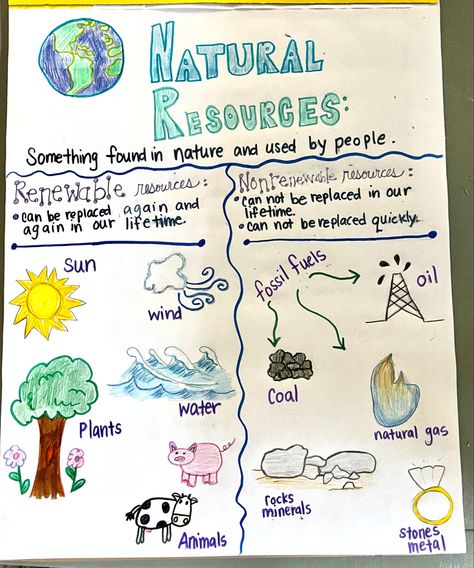 Natural
Resources:
Something found in nature and used by people.
Renewable resources:
• can be replaced again and
again in our lifetime.
Sun
wind
Plants
water
Animals
Nonrenewable resources:
• can not be replaced in our
lifetime.
• can not be replaced quickly.
fossil fuels
oil
Coal
natural gas
rocks
minerals
stones
metal